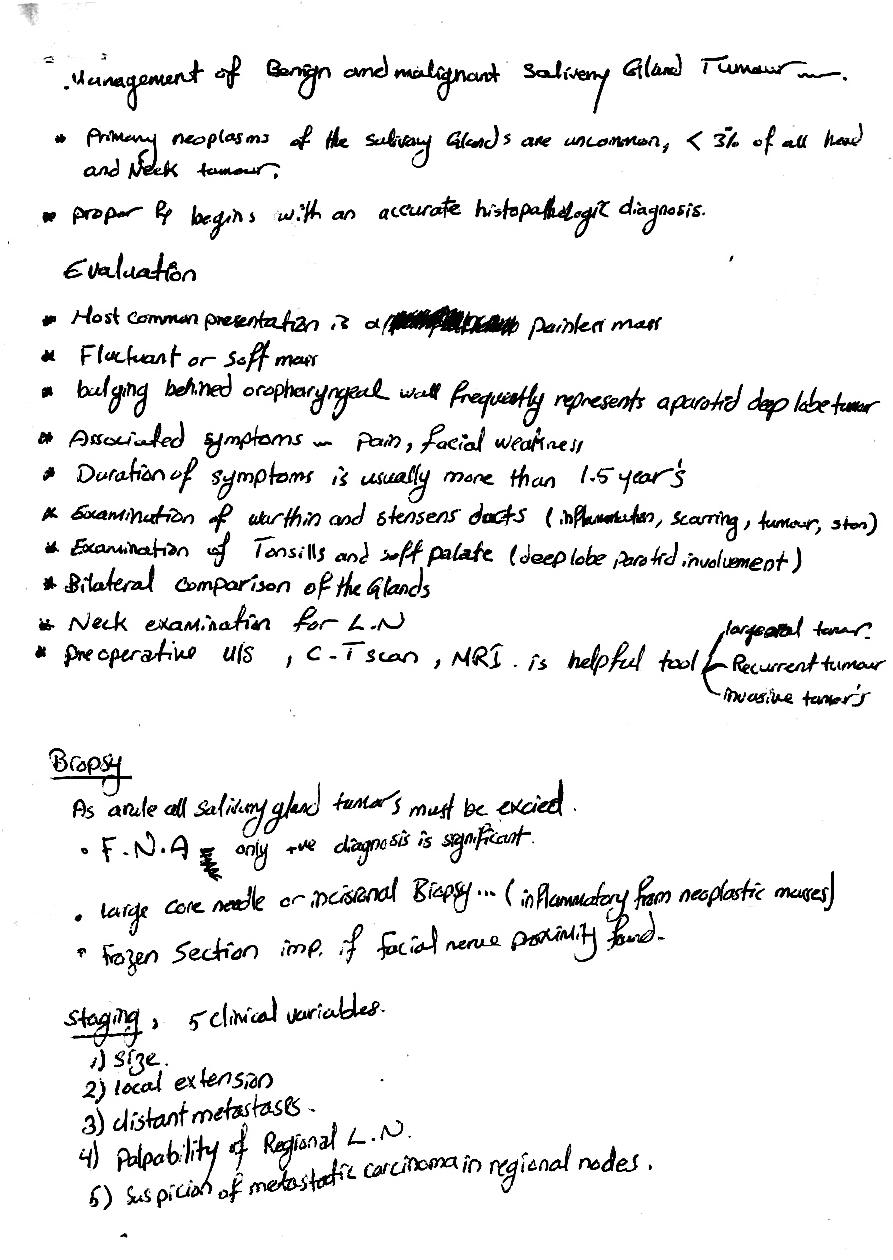 Management of Benign and malignant Salivery Gland Tumour
* Primary neoplasms of the salivary Glands are uncommon, < 3% of all head
and Neck tumour.
* proper Rx begins with an accurate histopathologic diagnosis.
Evaluation
* Most common presentation is a painless mass
* Fluctuant or soft mass
* bulging behined oropharyngeal wall frequently represents a parotid deep lobe tumor
* Associated symptoms — Pain, facial weakness
* Duration of symptoms is usually more than 1.5 year's
* Examination of warthin and stensens ducts (inflammation, scarring, tumour, ston)
* Examination of Tonsills and soff palate (deep lobe parotid involuement)
* Bilateral comparison of the Glands
* Neck examination for L.N
* preoperative U/S , C-T scan , MRI . is helpful tool
large tumor.
Recurrent tumour
invasive tumor's
Biopsy
As arule all salivary gland tumor's must be excied.
• F.N.A only +ve diagnosis is significant.
• large core needle or incisional Biopsy... (inflammatory from neoplastic masses)
• Frozen Section imp. if facial nerve proximity found.
Staging , 5 clinical variables.
1) size.
2) local extension
3) distant metastases.
4) Palpability of Regional L.N.
5) Suspicion of metastatic carcinoma in regional nodes.